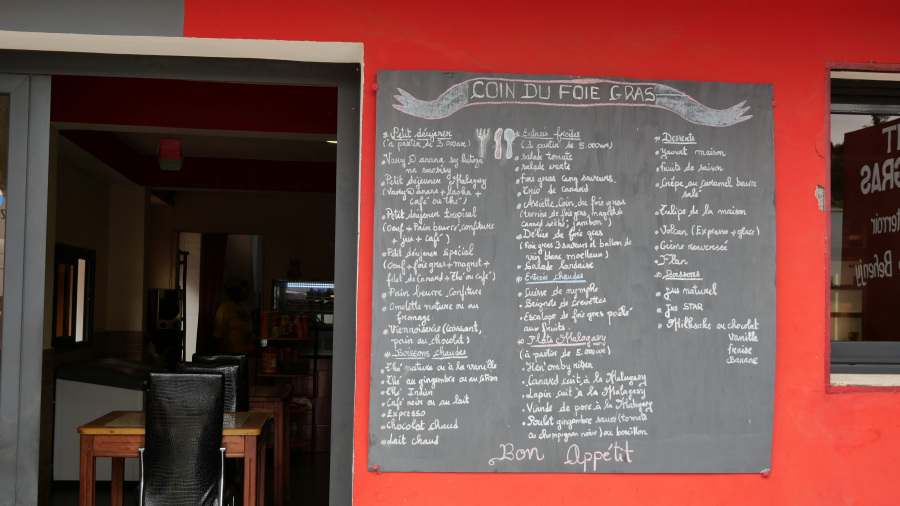 COIN DU FOIE GRAS
Petit déujener
(à partir de 3.000ar)
Vary @ anana sy kitoza
na saosisy
Petit déjeuner Malagasy
(Vary @ anana + saosisy +
café ou thé)
Petit déjeuner tropical
(Oeuf + Pain beurré, confiture
+ jus + café)
Petit déjeuner Spécial
(Oeuf + foie gras + magret +
filet de Canard + thé ou café)
Pain beurre, Confiture
Omelette nature ou au
fromage
Viennoiserie (croissant,
pain au chocolat)
Boissons chaudes
thé nature ou à la vanille
thé au gingembre ou au citron
thé Indien
Café noire ou au lait
Expresso
Chocolat chaud
lait chaud
Entrées froides
(à partir de 5.000ar)
salade tomate
salade verte
Foie gras cinq saveurs
Trio de canard
Assiette Coin du foie gras
(terrine de foie gras, magret de
canard séché, jambon)
Délice de foie gras
(Foie gras 3 saveurs et ballon de
vin blanc moelleux)
Salade landaise
Entrée chaudes
Cuisse de nymphe
Beignets de crevettes
Escalope de foie gras poêlé
aux fruits.
Plats Malagasy
(à partir de 5.000ar)
Hen'omby ritra
Canard cuit à la Malagasy
Lapin cuit à la Malagasy
Viande de porc à la Malagasy
Poulet gingembre sauce (tomate
ou champignon noire) ou bouillon
Desserts
yaourt maison
fruits de saison
Crêpe au caramel beurre
salé
Tulipe de la maison
Volcan (Expresso + glace)
Crème renversée
Flan
Boissons
jus naturel
jus STAR
Milkshake au chocolat
Vanille
fraise
Banane
Bon Appétit
GRAS
terroir
Behenjy